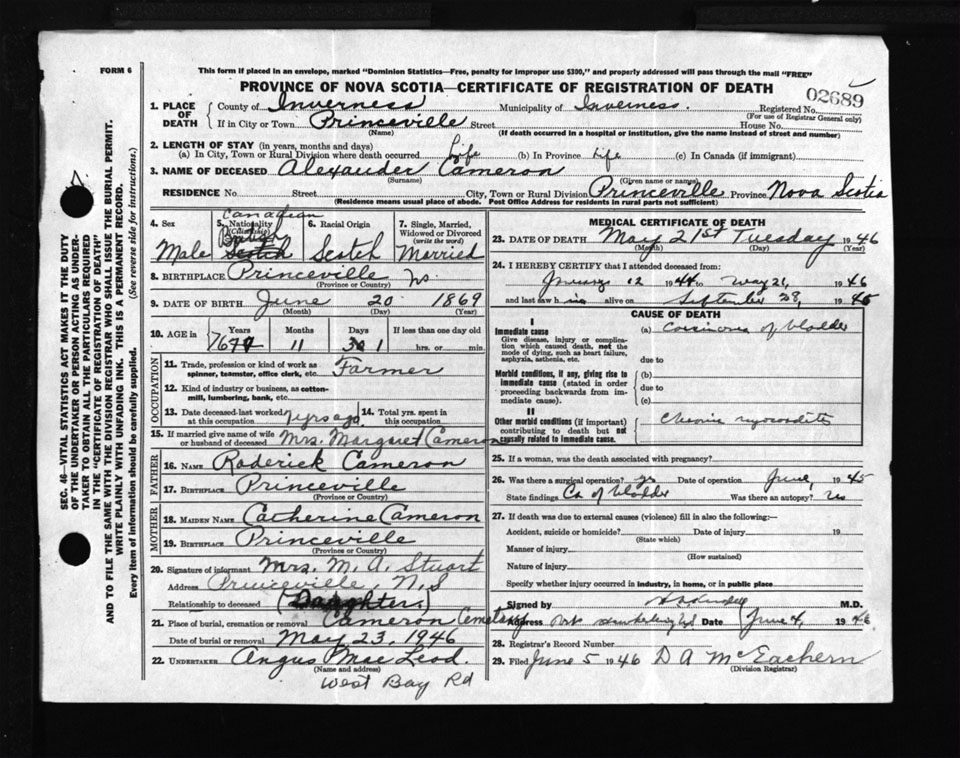 FORM 6
This form if placed in an envelope, marked "Dominion Statistics—Free, penalty for improper use $300," and properly addressed will pass through the mail "FREE"
PROVINCE OF NOVA SCOTIA—CERTIFICATE OF REGISTRATION OF DEATH
02689
1. PLACE OF DEATH
County of Inverness Municipality of Inverness. Registered No.
(For use of Registrar General only)
If in City or Town Princeville Street House No.
(Name) (If death occurred in a hospital or institution, give the name instead of street and number)
2. LENGTH OF STAY (in years, months and days)
(a) In City, Town or Rural Division where death occurred Life (b) In Province Life (c) In Canada (if immigrant)
3. NAME OF DECEASED Alexander Cameron
(Surname) (Given name or names)
RESIDENCE No. Street City, Town or Rural Division Princeville Province Nova Scotia
(Residence means usual place of abode. Post Office Address for residents in rural parts not sufficient)
4. Sex Male
5. Nationality (Citizenship) Canadian Scotch
6. Racial Origin Scotch
7. Single, Married, Widowed or Divorced (write the word) Married
8. BIRTHPLACE Princeville NS
(Province or Country)
9. DATE OF BIRTH June 20 1869
(Month) (Day) (Year)
10. AGE in Years Months Days If less than one day old
76 11 1 hrs. or min.
OCCUPATION
11. Trade, profession or kind of work as spinner, teamster, office clerk, etc. Farmer
12. Kind of industry or business, as cotton-mill, lumbering, bank, etc.
13. Date deceased last worked at this occupation 7 yrs ago 14. Total yrs. spent in this occupation
15. If married give name of wife or husband of deceased Mrs. Margaret Cameron
FATHER
16. NAME Roderick Cameron
17. BIRTHPLACE Princeville
(Province or Country)
MOTHER
18. MAIDEN NAME Catherine Cameron
19. BIRTHPLACE Princeville
(Province or Country)
20. Signature of informant Mrs. M. A. Stuart
Address Princeville, N.S
Relationship to deceased (Daughter)
21. Place of burial, cremation or removal Cameron Cemetary
Date of burial or removal May 23, 1946
22. UNDERTAKER Angus Mac Leod.
(Name and address)
West Bay Rd
MEDICAL CERTIFICATE OF DEATH
23. DATE OF DEATH May 21st Tuesday 1946
(Month) (Day) (Year)
24. I HEREBY CERTIFY that I attended deceased from:
January 12 1944 to May 21, 1946
and last saw him alive on September 28, 1945
CAUSE OF DEATH
I
Immediate cause (a) Carcinoma of bladder
Give disease, injury or complication which caused death, not the mode of dying, such as heart failure, asphyxia, asthenia, etc. due to
Morbid conditions, if any, giving rise to immediate cause (stated in order proceeding backwards from immediate cause). (b)
due to
(c)
II
Other morbid conditions (if important) contributing to death but not causally related to immediate cause. Chronic myocarditis
25. If a woman, was the death associated with pregnancy?
26. Was there surgical operation? yes Date of operation June, 1945
State findings Ca of bladder Was there an autopsy? no
27. If death was due to external causes (violence) fill in also the following:—
Accident, suicide or homicide? Date of injury 19
(State which)
Manner of injury
(How sustained)
Nature of injury
Specify whether injury occurred in industry, in home, or in public place
Signed by M.D.
Address Port Hawkesbury Date June 4, 1946
28. Registrar's Record Number
29. Filed June 5 1946 D A McEachern
(Division Registrar)
SEC. 46—VITAL STATISTICS ACT MAKES IT THE DUTY
OF THE UNDERTAKER OR PERSON ACTING AS UNDER-
TAKER TO OBTAIN ALL THE PARTICULARS REQUIRED
IN THE "CERTIFICATE OF REGISTRATION OF DEATH"
AND TO FILE THE SAME WITH THE DIVISION REGISTRAR WHO SHALL ISSUE THE BURIAL PERMIT.
WRITE PLAINLY WITH UNFADING INK. THIS IS A PERMANENT RECORD.
Every item of information should be carefully supplied. (See reverse side for instructions.)